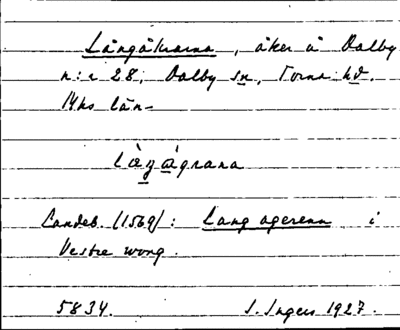 Långåkrarna, åker å Dalby
n:r 28, Dalby sn, Torna hd.
Mhs län
Landeb. (1569): Lang agerenn i
Vestre wong.
5834. I. Ingers 1927.